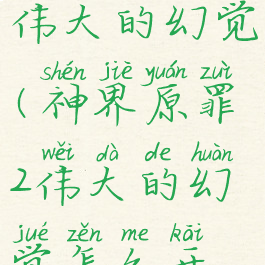 伟大的幻觉
shén jiè yuán zuì
(神界原罪
wěi dà de huàn
2伟大的幻
jué zěn me kāi
觉怎么开